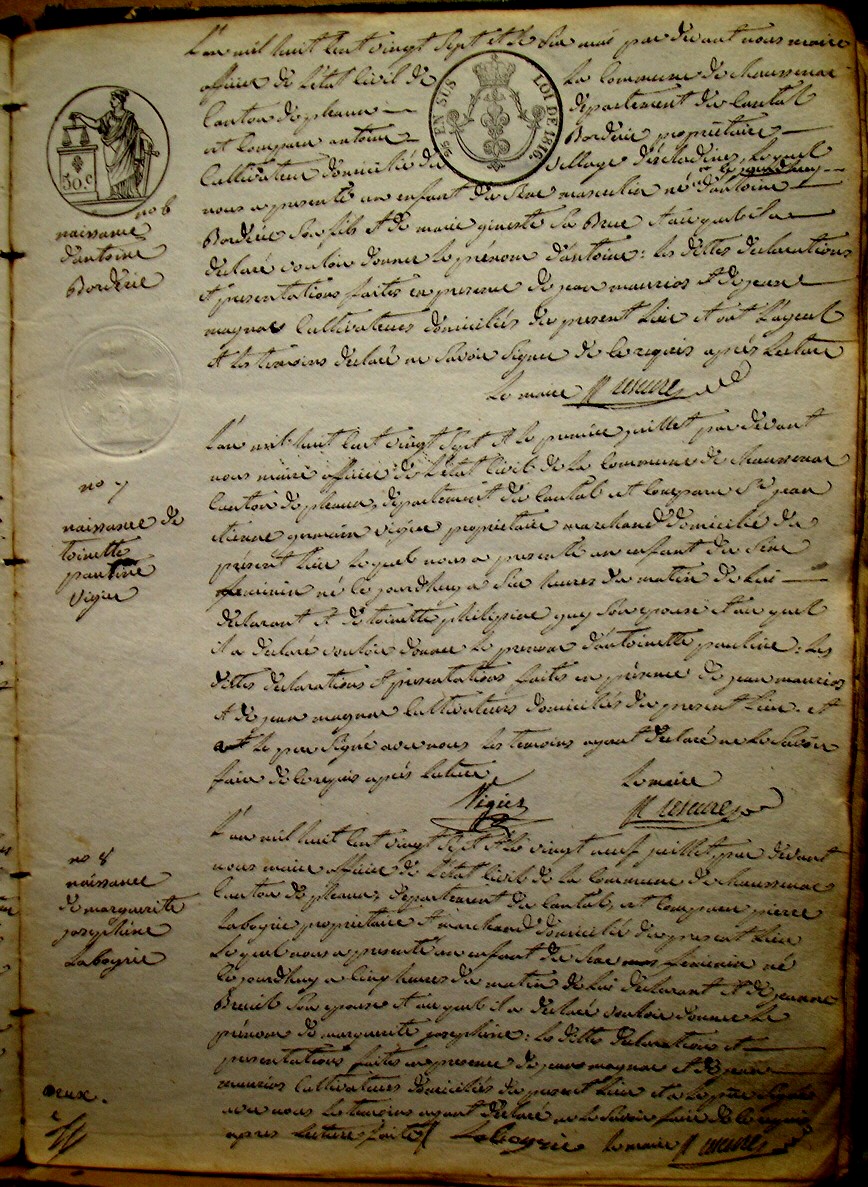 L'an mil huit cent vingt sept et le six mai par devant nous maire
officier de l'état civil de la commune de chaussenac
Canton de pleaux département du Cantal
est comparu antoine Bordérie propriétaire
Cultivateur domicilié du village lequel
nous a présenté un enfant du sexe masculin né d'antoine
Bordérie son fils et de marie et auquel il a
déclaré vouloir donner le prénom d'antoine: les dittes déclarations
et présentations faites en présence de jean maurios et de jean
magnac Cultivateurs domiciliés du présent lieu et ont l'ayeul
et les temoins déclaré ne savoir signer de ce requis après lecture
Le maire
EN SUS
LOI DE 1816.
50.c
no 6
naissance
d'antoine
Bordérie
L'an mil huit cent vingt sept et le premier juillet par devant
nous maire officier de l'état civil de la commune de chaussenac
Canton de pleaux, département du Cantal est comparu Sr jean
etienne germain vigier propriétaire marchand domicilié du
présent lieu lequel nous a présenté un enfant du sexe
feminin né ce jourdhuy a six heures du matin de lui
déclarant et de toinette philipine guy son epouse et auquel
il a déclaré vouloir donner le prenom d'antoinette pauline: les
dittes déclarations et présentations faites en présence de jean maurios
et de jean magnac Cultivateurs domiciliés du present lieu. et
le pere signé avec nous les temoins ayant déclaré ne le savoir
faire de ce requis après lecture
Vigier
Le maire
no 7
naissance de
toinette
pauline
vigier
L'an mil huit cent vingt sept et le vingt neuf juillet par devant
nous maire officier de l'état civil de la commune de chaussenac
Canton de pleaux, département du Cantal, est comparu pierre
Laboyrie propriétaire et marchand domicilié du present lieu
Lequel nous a presenté un enfant du sexe feminin né
ce jourdhuy a cinq heures du matin de lui déclarant et de jeanne
Breuil son epouse et auquel il a déclaré vouloir donner le
prénom de marguerite josephine: les dittes déclarations et
presentations faites en presence de jean magnac et de jean
maurios Cultivateurs domiciliés du present lieu et a le père signé
avec nous les temoins ayant déclaré ne le savoir faire de ce requis
après lecture faite Laboyrie le maire
no 8
naissance
de marguerite
josephine
Laboyrie
deux.